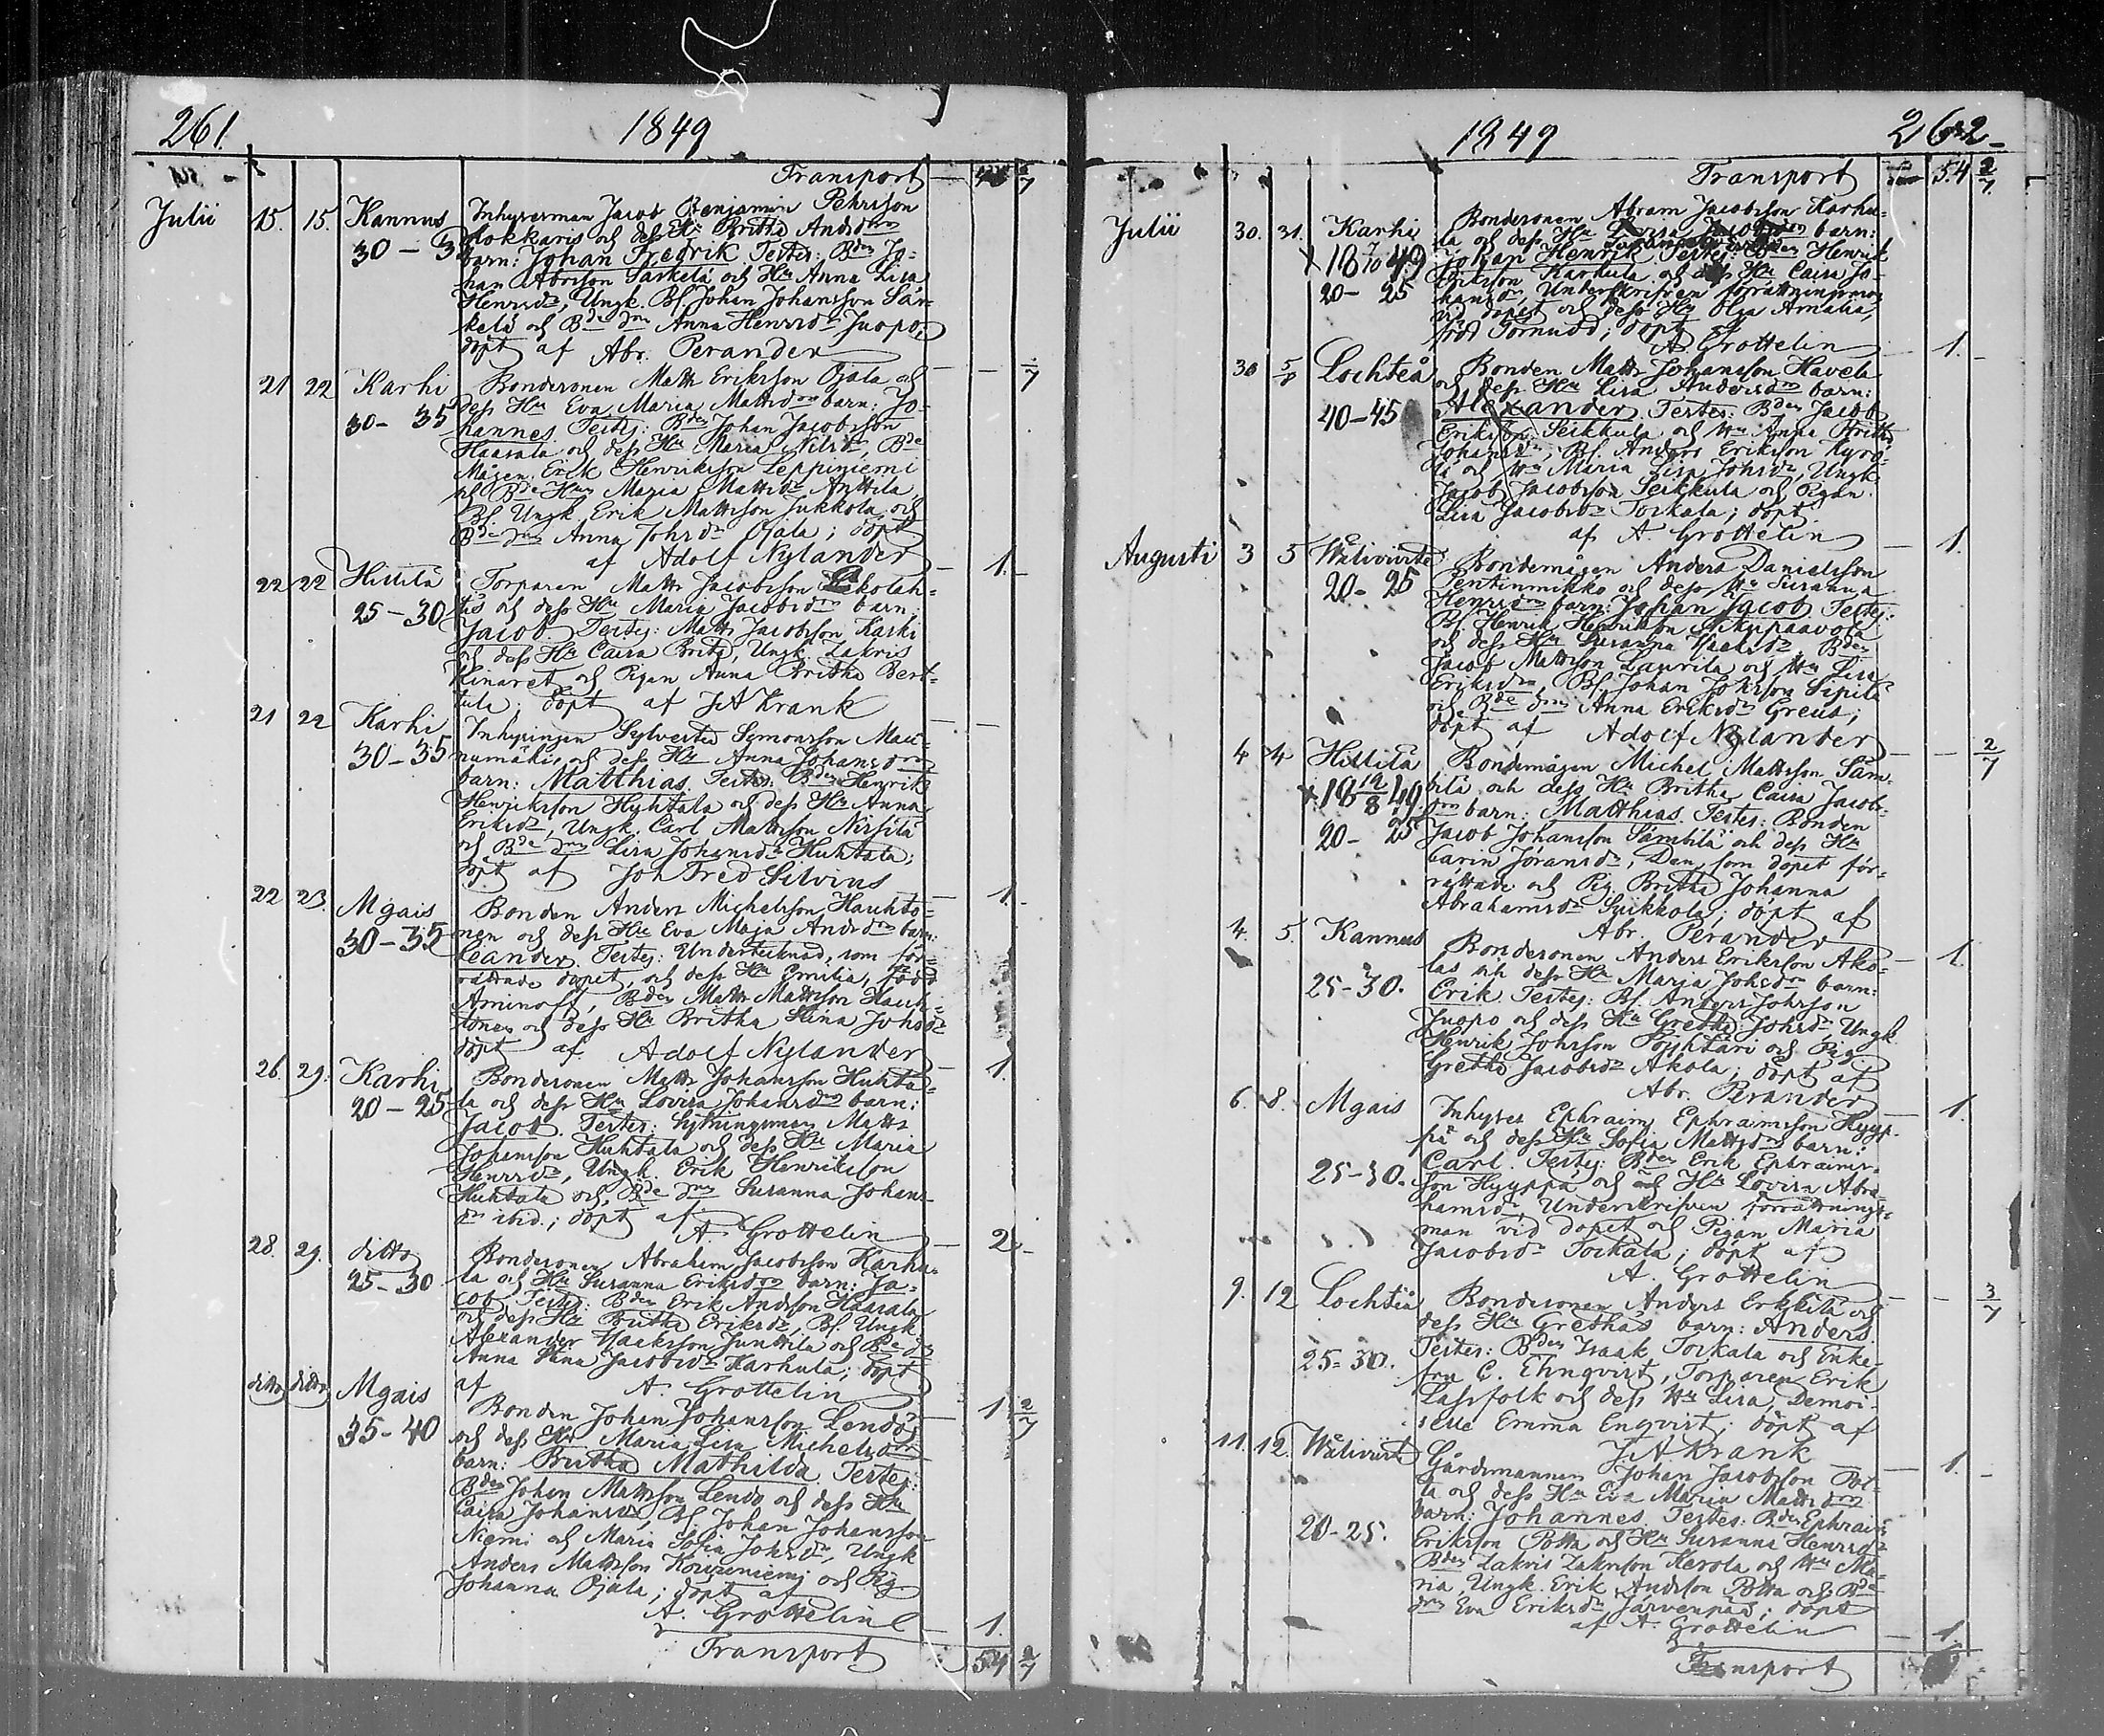 261.
1849
Transport — 2/7
Julii 15. 15. Kannus Inhysesman Jacob Benjamin Pehrsson
30 – 35 Hokkaris och dess Hu Britha Andsdrs
barn: Johan Fredrik. Testes: Bden Jo-
han Abrsson Särkelä och Hu Anna Lisa
Henrsdr, Ungk. Bs. Johan Johansson Sär-
kelä och Bde drn Anna Henrsdr Juopo,
döpt af Abr. Perander — — 2/7
21 22 Karhi Bondesonen Matth Eriksson Ojala och
30 – 35 dess Hu Eva Maria Mattsdrs barn: Jo-
hannes. Testes: Bden Johan Jacobsson
Haasala och dess Hu Maria Nilsdr, Bde
Mågen Erik Henriksson Leppiniemi
och Bde Hun Maria Mattsdr Anttila,
Bs. Ungk Erik Mattsson Jukkola och
Bde drn Anna Johsdr Ojala; döpt
af Adolf Nylander — 1. –
22 22 Hillilä Torparen Matts Jacobsson
25 – 30 och dess Hu Maria Jacobsdrs barn:
Jacob. Testes: Matts Jacobsson Karhi
och dess Hu Caisa Brita, Ungk. Zakris
Kinaret och Pigan Anna Britha Bert-
tula; döpt af JA Krank — —
21 22 Karhi Inhysingen Sylvester Simonsson Mau-
30 – 35 numäki, och dess Hu Anna Johansdrs
barn: Matthias. Testes: Bden Henrik
Henriksson Hyhtala och dess Hu Anna
Eriksdr, Ungk. Carl Mattsson Nirsilä
och Bde drn Lisa Johansdr Huhtala;
döpt af Joh Fred Silvius — 1. –
22 23. Mgais Bonden Anders Michelsson Hauhto-
30 – 35 nen och dess Hu Eva Maja Andrsdrs barn:
Leander. Testes: Undertecknad, som för-
rättade dopet, och dess Hu Emilia, född
Aminoff, Bden Matts Mattsson Hauh-
tonen och dess Hu Britha Stina Johsdr
döpt af Adolf Nylander — 1.
26. 29. Karhi Bondesonen Matts Johansson Huhta-
20 – 25 la och dess Hu Lovisa Johansdrs barn:
Jacob. Testes: Sytningsman Matts
Johansson Huhtala och dess Hu Maria
Henrsdr, Ungk. Erik Henriksson
Huhtala och Bde drn Susanna Johans-
dr ibid.; döpt af
A. Grottelin — 2 –
28. 29. ditto Bondesonen Abraham Jacobsson Karhu-
25 – 30 la och Hu Susanna Eriksdrs barn: Ja-
cob. Testes: Bden Erik Andsson Haasala
och dess Hu Britha Eriksdr, Bs. Ungk
Alexander Isacksson Junttila och Bde drn
Anna Stina Jacobsdr Karhula; döpt
af A. Grottelin — 1 2/7
ditto ditto Mgais Bonden Johan Johansson Lendo
35 – 40 och dess Hu Maria Lisa Michelsdrs
barn: Britha Mathilda. Testes:
Bden Johan Mattsson Lendo och dess Hu
Caisa Johansdr, Bs. Johan Johansson
Niemi och Maria Sofia Johsdr, Ungk
Anders Mattsson Koivuniemi och Pig.
Johanna Ojala; döpt af
A. Grottelin — 1.
Transport 54 2/7
1849
262
Transport 54 2/7
Julii 30. 31. Karhi Bondesonen Abram Jacobsson Karhu-
x 18 7/10 49 la och dess Hu barn:
Johan Henrik. Testes: Bden Henrik
20 – 25 Eriksson Karhula och dess Hu Caisa Jo-
hansdr, Underskrifven förrättningsman
vid dopet och dess Hu Olga Amalia,
född Törnudd; döpt af
A. Grottelin — 1. –
30 5/8 Lochteå Bonden Matts Johansson Havela
och dess Hu Lisa Andersdrs barn:
40 – 45 Alexander. Testes: Bden Jacob
Eriksson Seikkula och Hu Anna Britha
Johansdr, Bs. Anders Eriksson Kyrö-
lä och Hu Maria Lisa Johsdr, Ungk.
Jacob Jacobsson Seikkula och Pigan
Lisa Jacobsdr Torkala; döpt
af A Grottelin — 1.
Augusti 3 5 Ylivirta Bondemågen Anders Danielsson
20 – 25 Pentinmikko och dess Hu Susanna
Henrsdrs barn: Johan Jacob. Testes:
Bs. Henrik Henriksson
och dess Hu Susanna Isacksdr, Bden
Jacob Mattsson Laurila och Hu Lisa
Eriksdr, Bs Johan Johsson Sipilä
och Bde drn Anna Eriksdr Greus;
döpt af Adolf Nylander — — 2/7
4 4 Hillilä Bondemågen Michel Mattsson Säm-
x 18 19/8 49 tilä och dess Hu Britha Caisa Jacobs-
drs barn: Matthias. Testes: Bonden
20 – 25 Jacob Johansson Sämtilä och dess Hu
Carin Jöransdr, Den, som dopet för-
rättade och Pig. Britha Johanna
Abrahamsdr Syrikkola; döpt af
Abr. Perander — 1.
4. 5. Kannus Bondesonen Anders Eriksson Ako-
las och dess Hu Maria Johsdrs barn:
25 – 30. Erik. Testes: Bs. Anders Johsson
Juopo och dess Hu Gretha Johsdr, Ungk
Henrik Johsson Pöyhtäri och Pig.
Gretha Jacobsdr Akola; döpt af
Abr. Perander — 1.
6. 8. Mgais Inhyses Ephraim Ephraimsson Hyyp-
pä och dess Hu Sofia Mattsdrs barn:
Carl. Testes: Bden Erik Ephraims-
25 – 30. son Hyyppä och Hu Lovisa Abra-
hamsdr, Underskrifven förrättnings-
man vid dopet och Pigan Maria
Jacobsdr Torkala; döpt af
A. Grottelin — – 3/7
9. 12 Lochteå Bondesonen Anders Erkkilä och
dess Hu Grethas barn: Anders.
25 – 30. Testes: Bden Isaak Torkala och Enke-
fru C. Ehnqvist, Torparen Erik
Lassfolk och dess Hu Lisa, Demoi-
selle Emma Enqvist; döpt af
JA Krank — 1. –
11. 12. Ylivirta Gårdsmannen Johan Jacobsson Pot-
ta och dess Hu Eva Maria Mattsdrs
20 – 25. barn: Johannes. Testes: Bden Ephraim
Eriksson Potta och Hu Susanna Henrsdr
Bden Zakris Zakrisson Kerola och Hu Ma-
ria, Ungk. Erik Andsson Potta och Bde
drn Eva Eriksdr Järvenpää; döpt
af A. Grottelin — 1
Transport